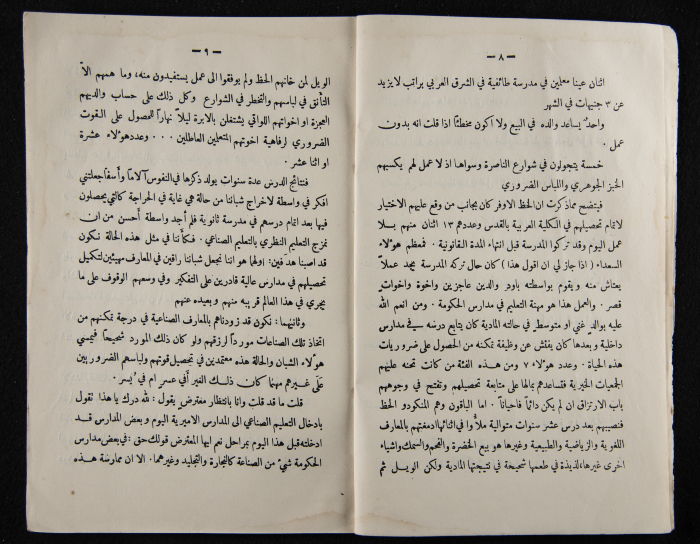 — ٨ —
اثنان عينا معلمين في مدرسة طائفية في الشرق العربي براتب لا يزيد
عن ٣ جنيهات في الشهر
واحدٌ يساعد والده في البيع ولا اكون مخطئاً اذا قلت انه بدون
عمل .
خمسة يتجولون في شوارع الناصرة وسواها اذ لا عمل لهم يكسبهم
الخبز الجوهري واللباس الضروري
فيتضح مما ذكرت ان الحظ الاوفر كان بجانب من وقع عليهم الاختيار
لاتمام تحصيلهم في الكلية العربية بالقدس وعددهم ١٣ اثنان منهم بلا
عمل اليوم وقد تركوا المدرسة قبل انتهاء المدة القانونية . فمعظم هؤلاء
السعداء ( اذا جاز لي ان اقول هذا ) كان حال تركه المدرسة يجد عملاً
يعتاش منه ويقوم بواسطته بأود والدين عاجزين واخوة واخوات
قصر . والعمل هذا هو مهنة التعليم في مدارس الحكومة . ومن انعم الله
عليه بوالد غني او متوسط في حالته المادية كان يتابع درسه في مدارس
داخلية وبعدها كان يفتش عن وظيفة تمكنه من الحصول على ضروريات
هذه الحياة . وعدد هؤلاء ٧ ومن هذه الفئة من كانت تحنه عليهم
الجمعيات الخيرية فتساعدهم بمالها على متابعة تحصيلهم وتفتح في وجوههم
باب الارتزاق ان لم يكن دائماً فأحياناً . اما الباقون وهم المنكودو الحظ
فنصيبهم بعد درس عشر سنوات متوالية ملأوا في اثنائها ادمغتهم بالمعارف
اللغوية والرياضية والطبيعية وغيرها هو بيع الخضرة والفحم والسمك واشياء
اخرى غيرها لذيذة في طعمها شحيحة في نتيجتها المادية ولكن الويل ثم
— ٩ —
الويل لمن خانهم الحظ ولم يوفقوا الى عمل يستفيدون منه، وما همهم الاّ
التأنق في لباسهم والتخطر في الشوارع وكل ذلك على حساب والديهم
العجزة او اخواتهم اللواتي يشتغلن بالابرة ليلاً نهاراً للحصول على القوت
الضروري لرفاهية اخوتهم المتعلمين العاطلين . . . وعدد هؤلاء عشرة
او اثنا عشر .
فنتائج الدرس عدة سنوات يولد ذكرها في النفوس آلاماً وأسفاً جعلتني
افكر في واسطة لاخراج شباننا من حالة هي غاية في الحراجة كالتي يحصلون
فيها بعد اتمام درسهم في مدرسة ثانوية فلم أجد واسطة أحسن من ان
نمزج التعليم النظري بالتعليم الصناعي . فكأننا في مثل هذه الحالة نكون
قد اصبنا هدفين: اولهما هو اننا نجعل شباننا راقين في المعارف مهيئين لتكميل
تحصيلهم في مدارس عالية قادرين على التفكير وفي وسعهم الوقوف على ما
يجري في هذا العالم قريبه منهم وبعيده عنهم
وثانيهما: نكون قد زودناهم بالمعارف الصناعية في درجة تمكنهم من
اتخاذ تلك الصناعات مورداً لرزقهم ولو كان ذلك المورد شحيحاً فيمسي
هؤلاء الشبان والحالة هذه معتمدين في تحصيل قوتهم ولباسهم الضروريين
على غيرهم مهما كان ذلك الغير أفي عسر ام في يُسر .
قلت ما قد قلت وانا بانتظار معترضٍ يقول : لله درك يا هذا تقول
بادخال التعليم الصناعي الى المدارس الاميرية اليوم و بعض المدارس قد
ادخلته قبل هذا اليوم بمراحل نعم ايها المعترض قولك حق : في بعض مدارس
الحكومة شيءٌ من الصناعة كالنجارة والتجليد وغيرهما. الا ان ممارسة هذه